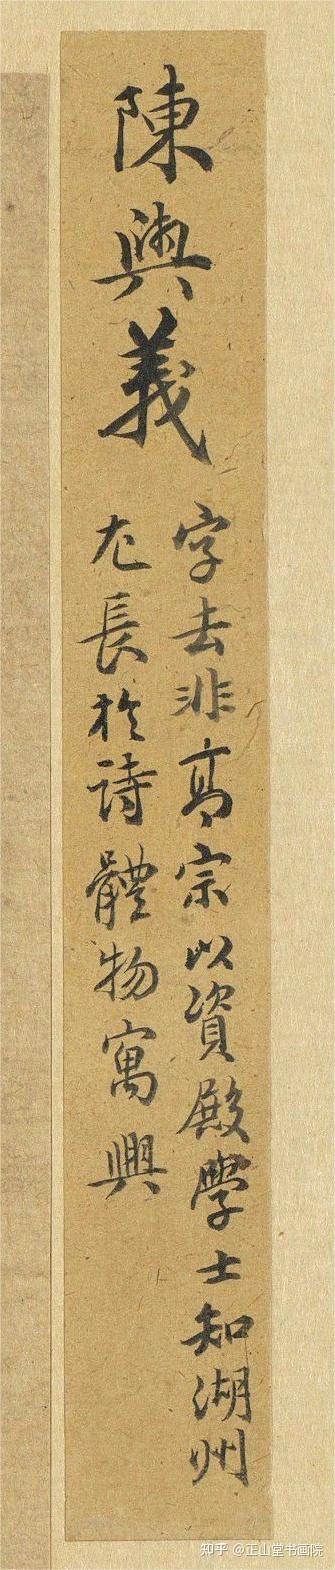 陳與義
字去非高宗以資殿學士知湖州
尤長於詩體物寓興
知乎 @正山堂书画院